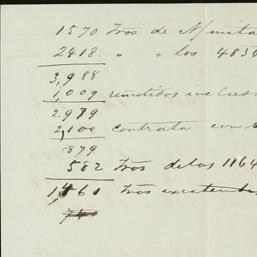 1570 Tros de Ajuita
2418 " " los 4830
3,988
1,009 remitidos inclus
2.979
2,100 contrata con
879
582 Tros de los 1164
1,461 Tros existent